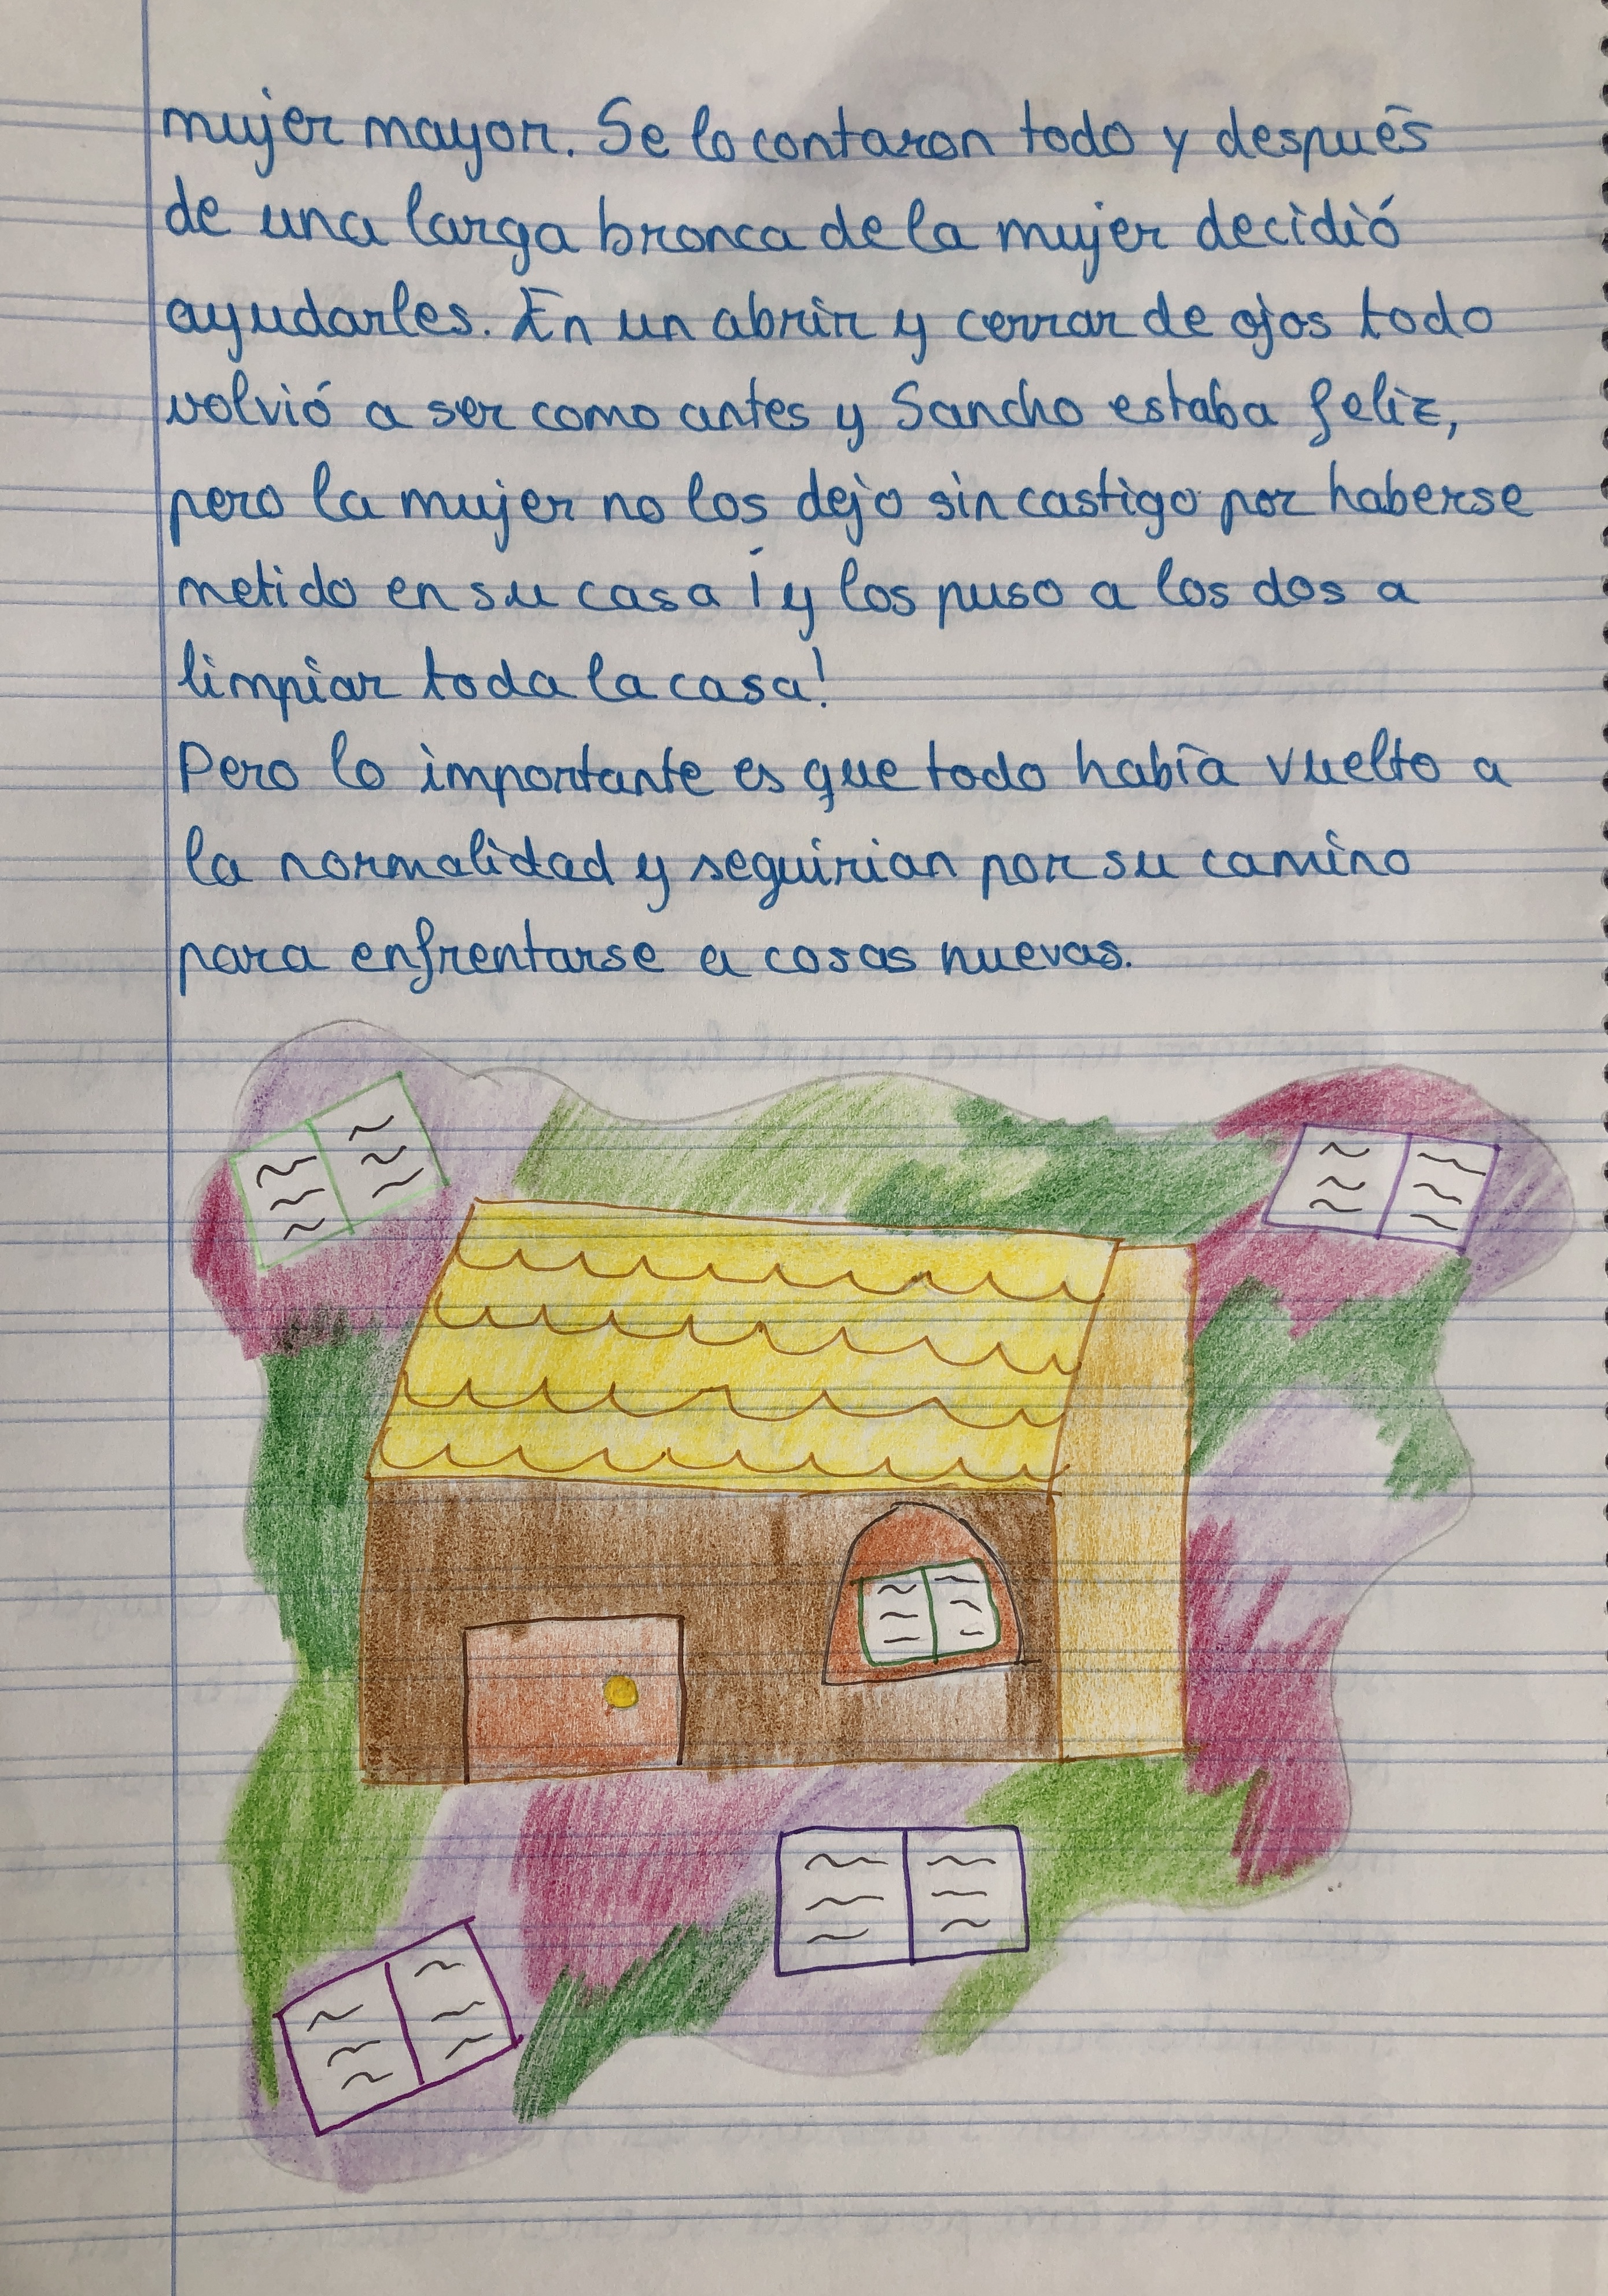 mujer mayor. Se lo contaron todo y después
de una larga bronca de la mujer decidió
ayudarles. En un abrir y cerrar de ojos todo
volvió a ser como antes y Sancho estaba feliz,
pero la mujer no los dejo sin castigo por haberse
metido en su casa ¡y los puso a los dos a
limpiar toda la casa!
Pero lo importante es que todo había vuelto a
la normalidad y seguirian por su camino
para enfrentarse a cosas nuevas.